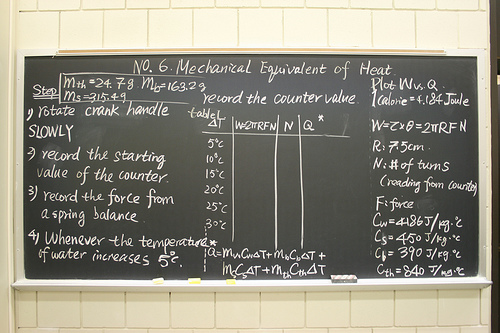 No. 6. Mechanical Equivalent of Heat
mth=24.7g. mb=163.2g
ms=315.4g
Step
record the counter value.
1) rotate crank handle
SLOWLY
2) record the starting
value of the counter.
3) record the force from
a spring balance.
4) Whenever the temperature
of water increases 5°C.
table1
ΔT W=2πRFN N Q *
5°C
10°C
15°C
20°C
25°C
30°C
* Q=mwCwΔT+mbCbΔT+
msCsΔT+mthCthΔT
Plot W vs. Q
1 calorie = 4.184 Joule
W=τ×θ=2πRFN
R: 7.5cm
N: # of turns
(reading from counter)
F: force
Cw=4186 J/kg·°C
Cs=450 J/kg·°C
Cb=390 J/kg·°C
Cth=840 J/kg·°C